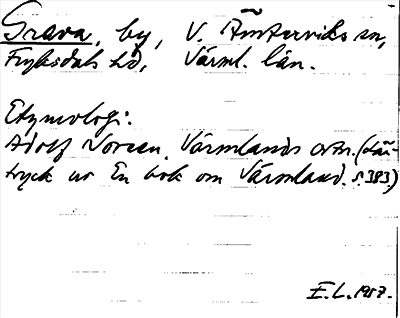 Grava, by, V. Ämterviks sn,
Fryksdals hd, Värml. län.
Etymologi.
Adolf Noreen, Värmlands ortn. (Sär-
tryck ur En bok om Värmland. s. 383.)
E.L. 1957.